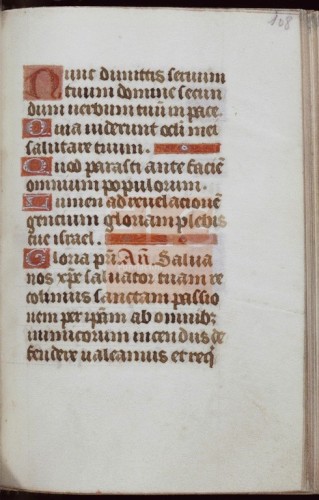 108
Nunc dimittis seruum
tuum domine secun
dum uerbum tuū in pace.
Quia uiderunt oculi mei
salutare tuum.
Quod parasti ante faciē
omnium populorum.
Lumen ad reuelationē
gencium gloriam plebis
tue israel.
Gloria pr̄i. An̄. Salua
nos xp̄e saluator tuam re
colimus sanctam passio
nem per ip̄am ab omnibꝫ
inimicorum incendiis de
fendere ualeamus et req̄